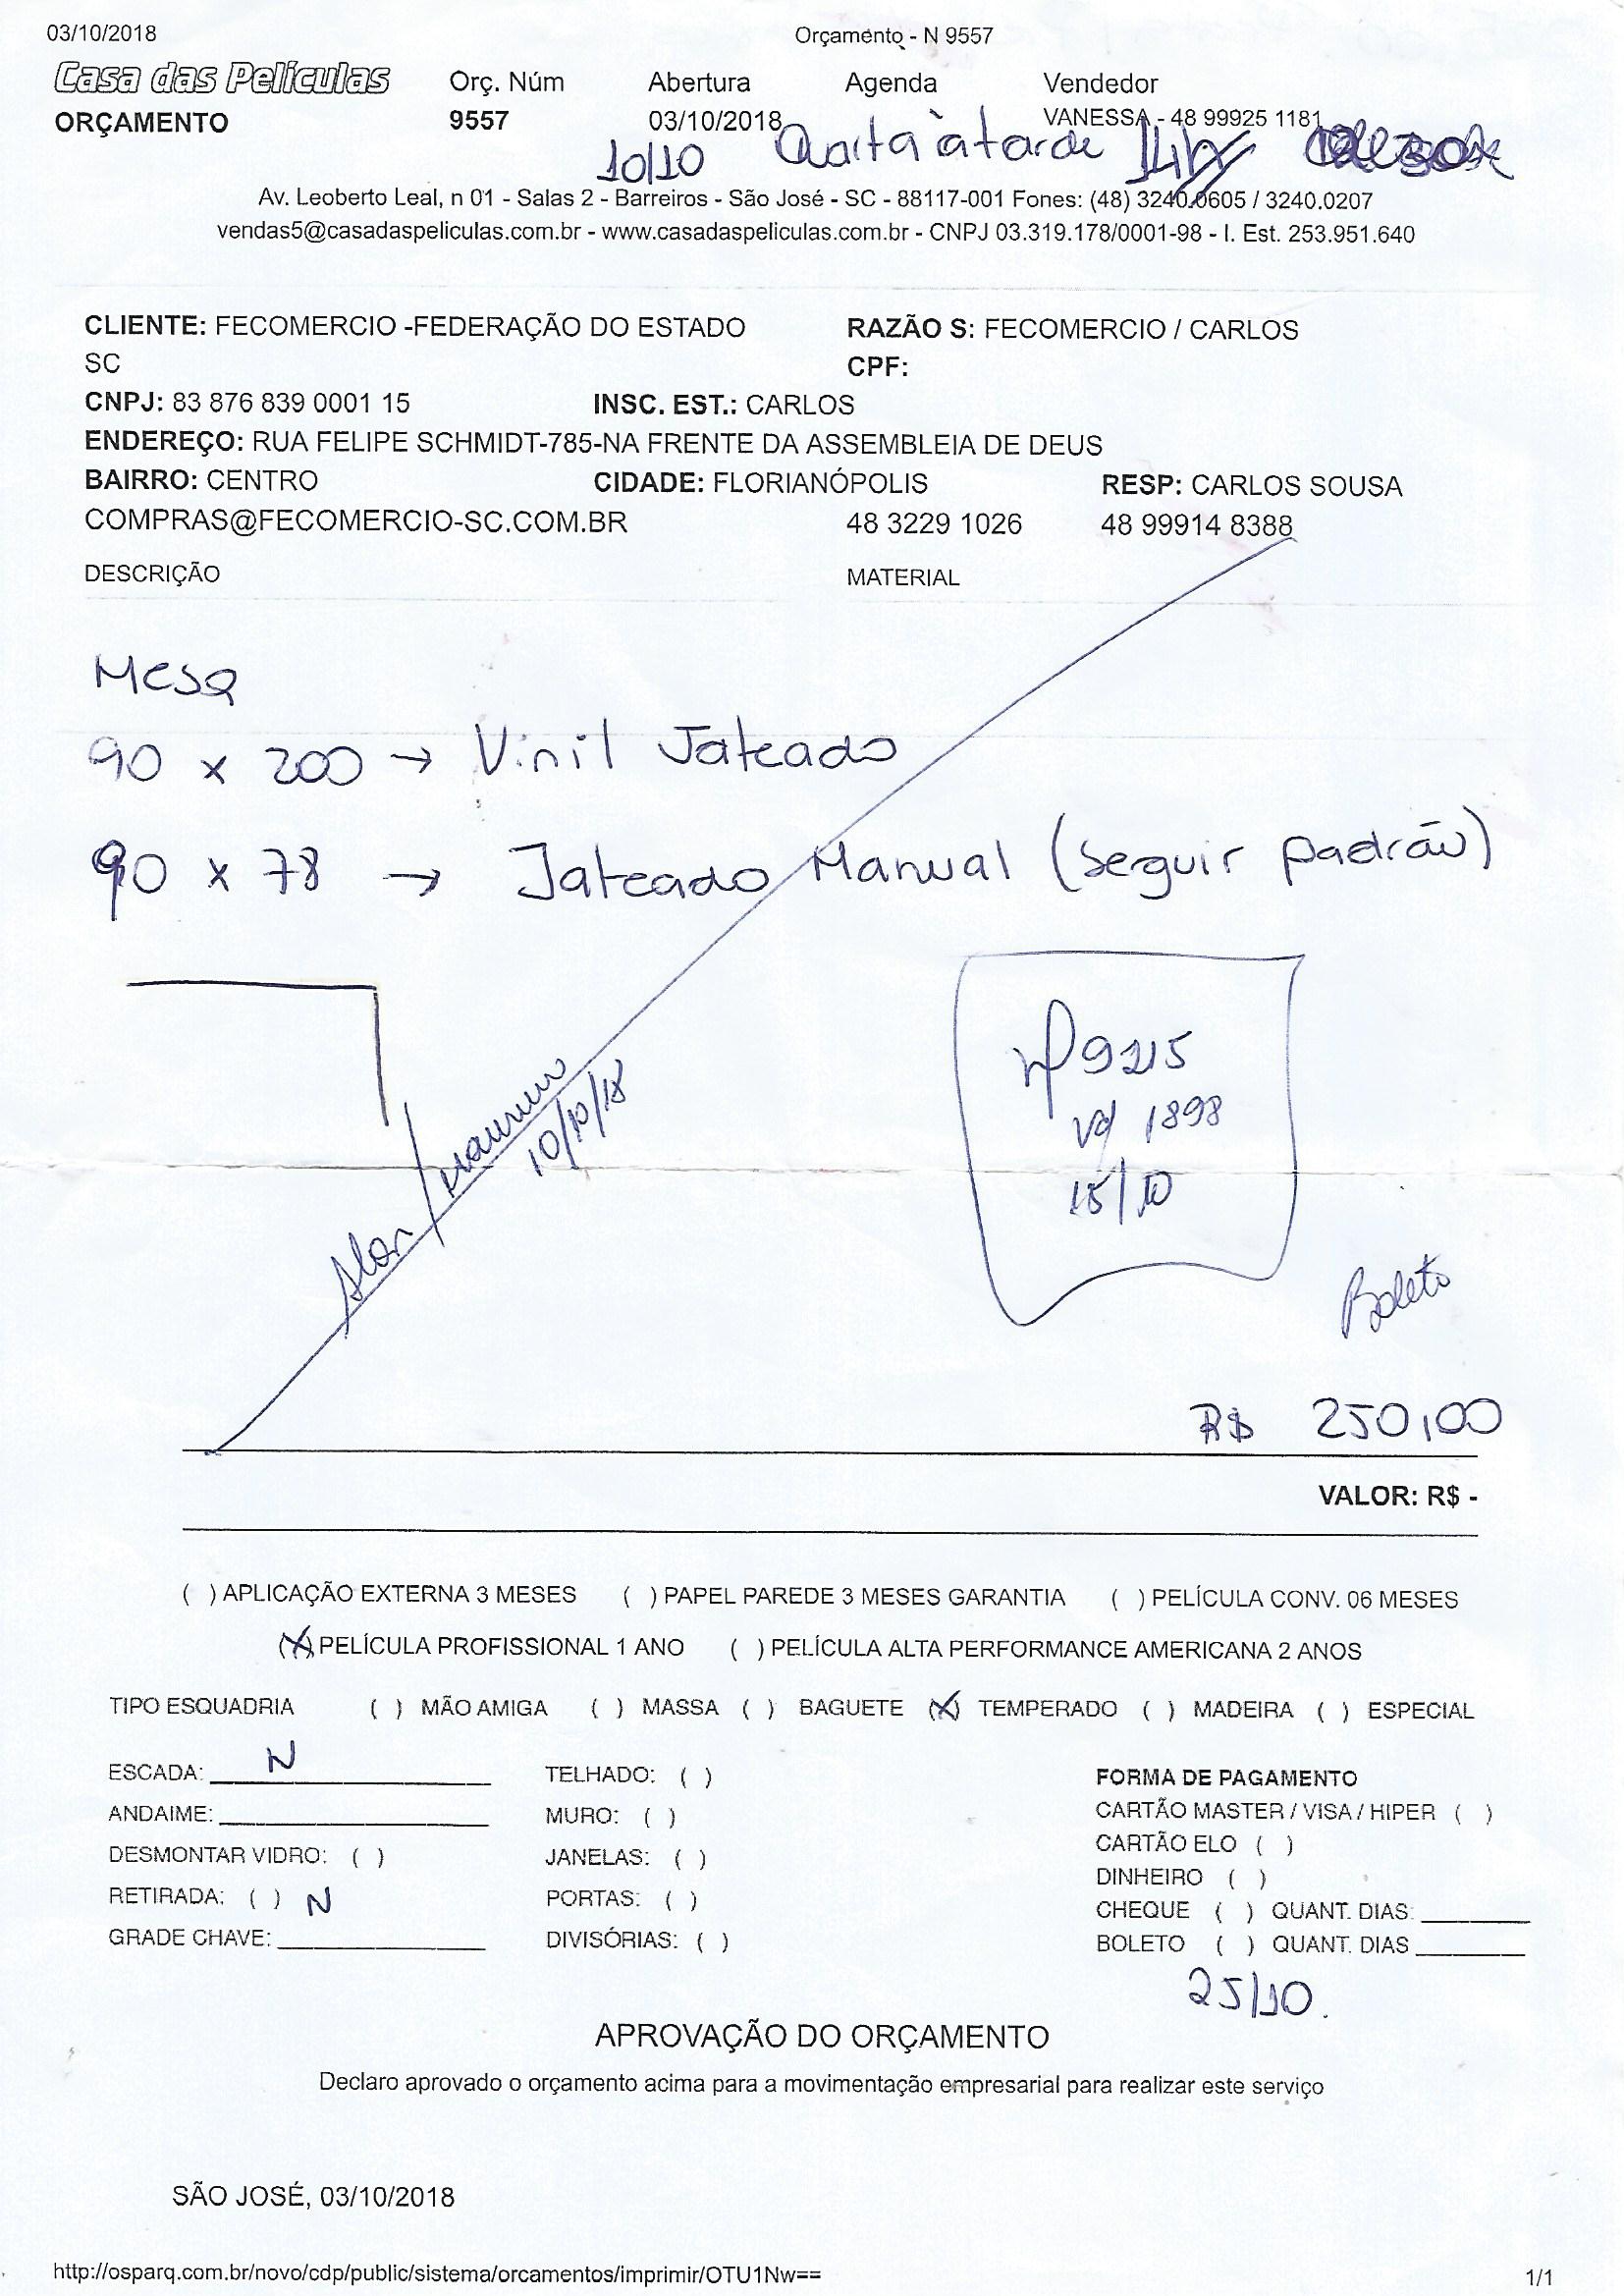 03/10/2018 Orçamento - N 9557
Casa das Películas Orç. Núm Abertura Agenda Vendedor
ORÇAMENTO 9557 03/10/2018 VANESSA - 48 99925 1181
10/10 Quarta à tarde
Av. Leoberto Leal, n 01 - Salas 2 - Barreiros - São José - SC - 88117-001 Fones: (48) 3240.0605 / 3240.0207
vendas5@casadaspeliculas.com.br - www.casadaspeliculas.com.br - CNPJ 03.319.178/0001-98 - I. Est. 253.951.640
CLIENTE: FECOMERCIO -FEDERAÇÃO DO ESTADO RAZÃO S: FECOMERCIO / CARLOS
SC CPF:
CNPJ: 83 876 839 0001 15 INSC. EST.: CARLOS
ENDEREÇO: RUA FELIPE SCHMIDT-785-NA FRENTE DA ASSEMBLEIA DE DEUS
BAIRRO: CENTRO CIDADE: FLORIANÓPOLIS RESP: CARLOS SOUSA
COMPRAS@FECOMERCIO-SC.COM.BR 48 3229 1026 48 99914 8388
DESCRIÇÃO MATERIAL
Mesa
90 x 200 → Vinil Jateado
90 x 78 → Jateado Manual (seguir padrão)
nf 9215
vd 1898
15/10
10/10/18
Boleto
R$ 250,00
VALOR: R$ -
( ) APLICAÇÃO EXTERNA 3 MESES ( ) PAPEL PAREDE 3 MESES GARANTIA ( ) PELÍCULA CONV. 06 MESES
(X) PELÍCULA PROFISSIONAL 1 ANO ( ) PELÍCULA ALTA PERFORMANCE AMERICANA 2 ANOS
TIPO ESQUADRIA ( ) MÃO AMIGA ( ) MASSA ( ) BAGUETE (X) TEMPERADO ( ) MADEIRA ( ) ESPECIAL
ESCADA: N TELHADO: ( ) FORMA DE PAGAMENTO
ANDAIME: MURO: ( ) CARTÃO MASTER / VISA / HIPER ( )
DESMONTAR VIDRO: ( ) JANELAS: ( ) CARTÃO ELO ( )
DINHEIRO ( )
RETIRADA: ( ) N PORTAS: ( ) CHEQUE ( ) QUANT. DIAS:
GRADE CHAVE: DIVISÓRIAS: ( ) BOLETO ( ) QUANT. DIAS
25/10.
APROVAÇÃO DO ORÇAMENTO
Declaro aprovado o orçamento acima para a movimentação empresarial para realizar este serviço
SÃO JOSÉ, 03/10/2018
http://osparq.com.br/novo/cdp/public/sistema/orcamentos/imprimir/OTU1Nw== 1/1